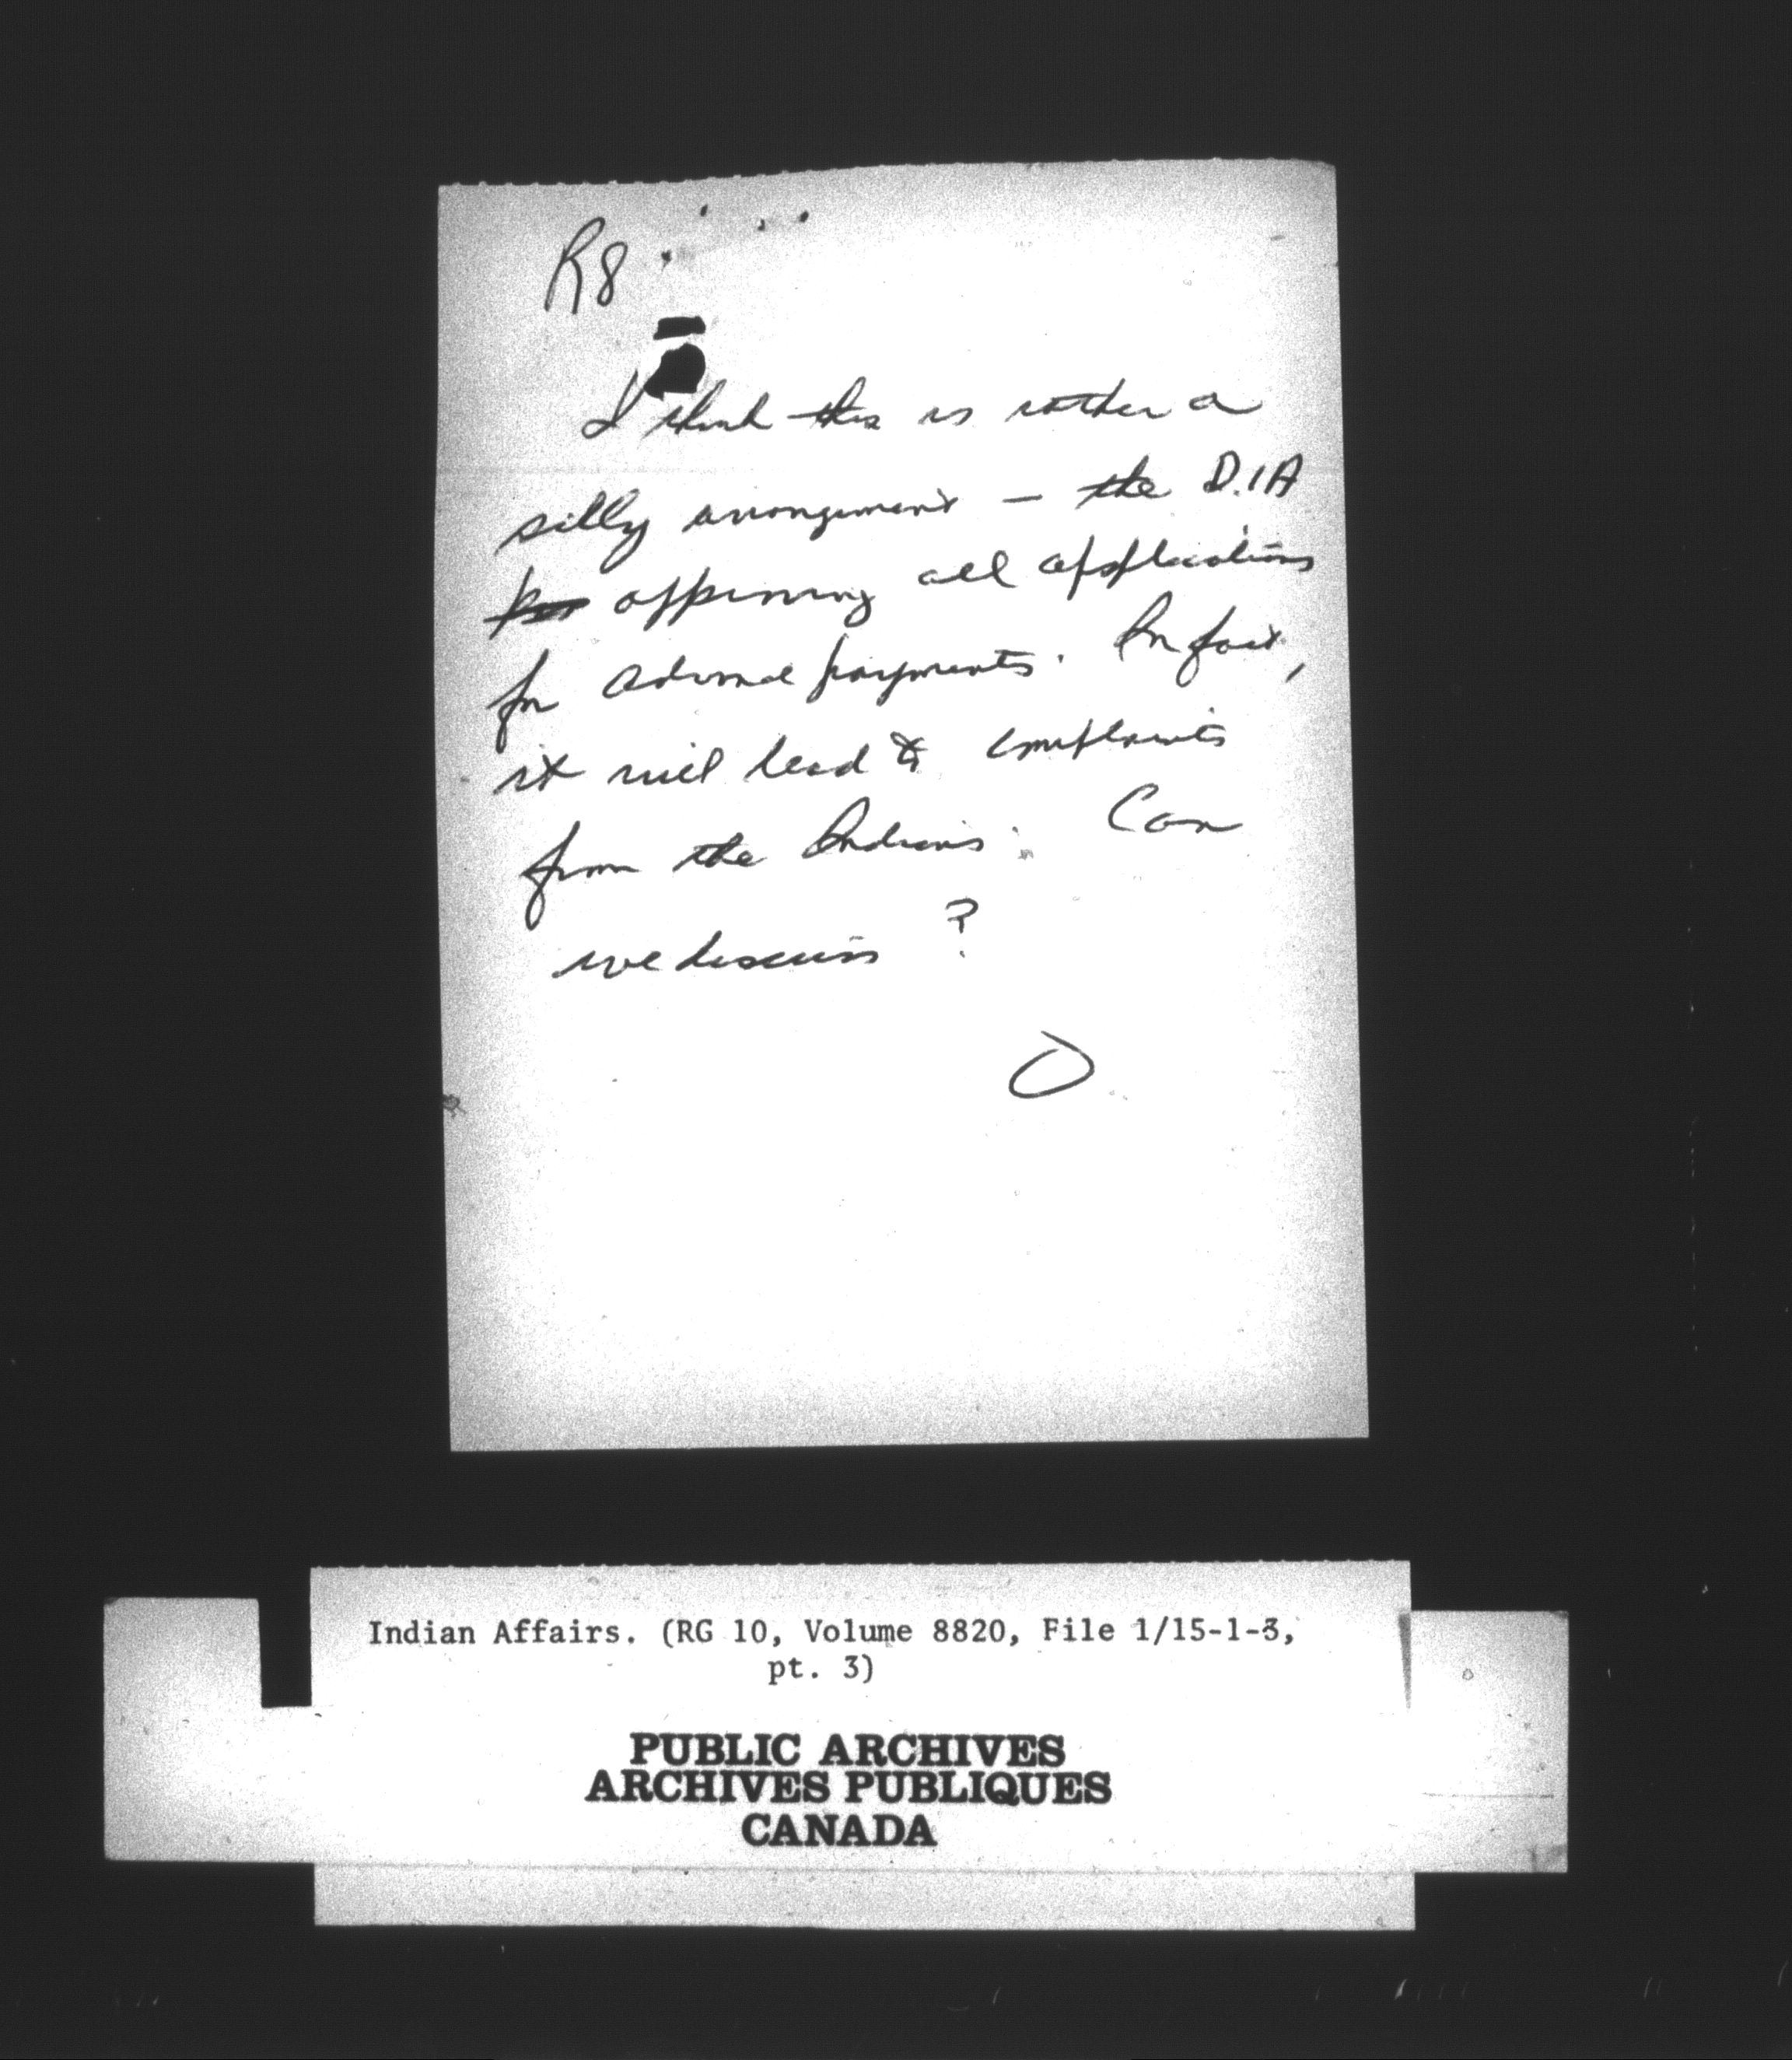 R8
I think this is rather a
silly arrangement — the D.I.A
approving all applications
for advance payments. In fact,
it will lead to complaints
from the Indians. Can
we discuss ?
Indian Affairs. (RG 10, Volume 8820, File 1/15-1-3,
pt. 3)
PUBLIC ARCHIVES
ARCHIVES PUBLIQUES
CANADA